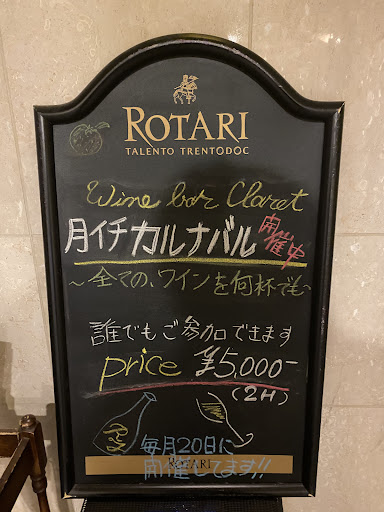 ROTARI
TALENTO TRENTODOC
Wine bar Claret
月イチカルナバル 開催中
～全ての、ワインを何杯でも～
誰でもご参加できます
price ¥5,000-
(2H)
毎月20日に
開催してます!!
ROTARI